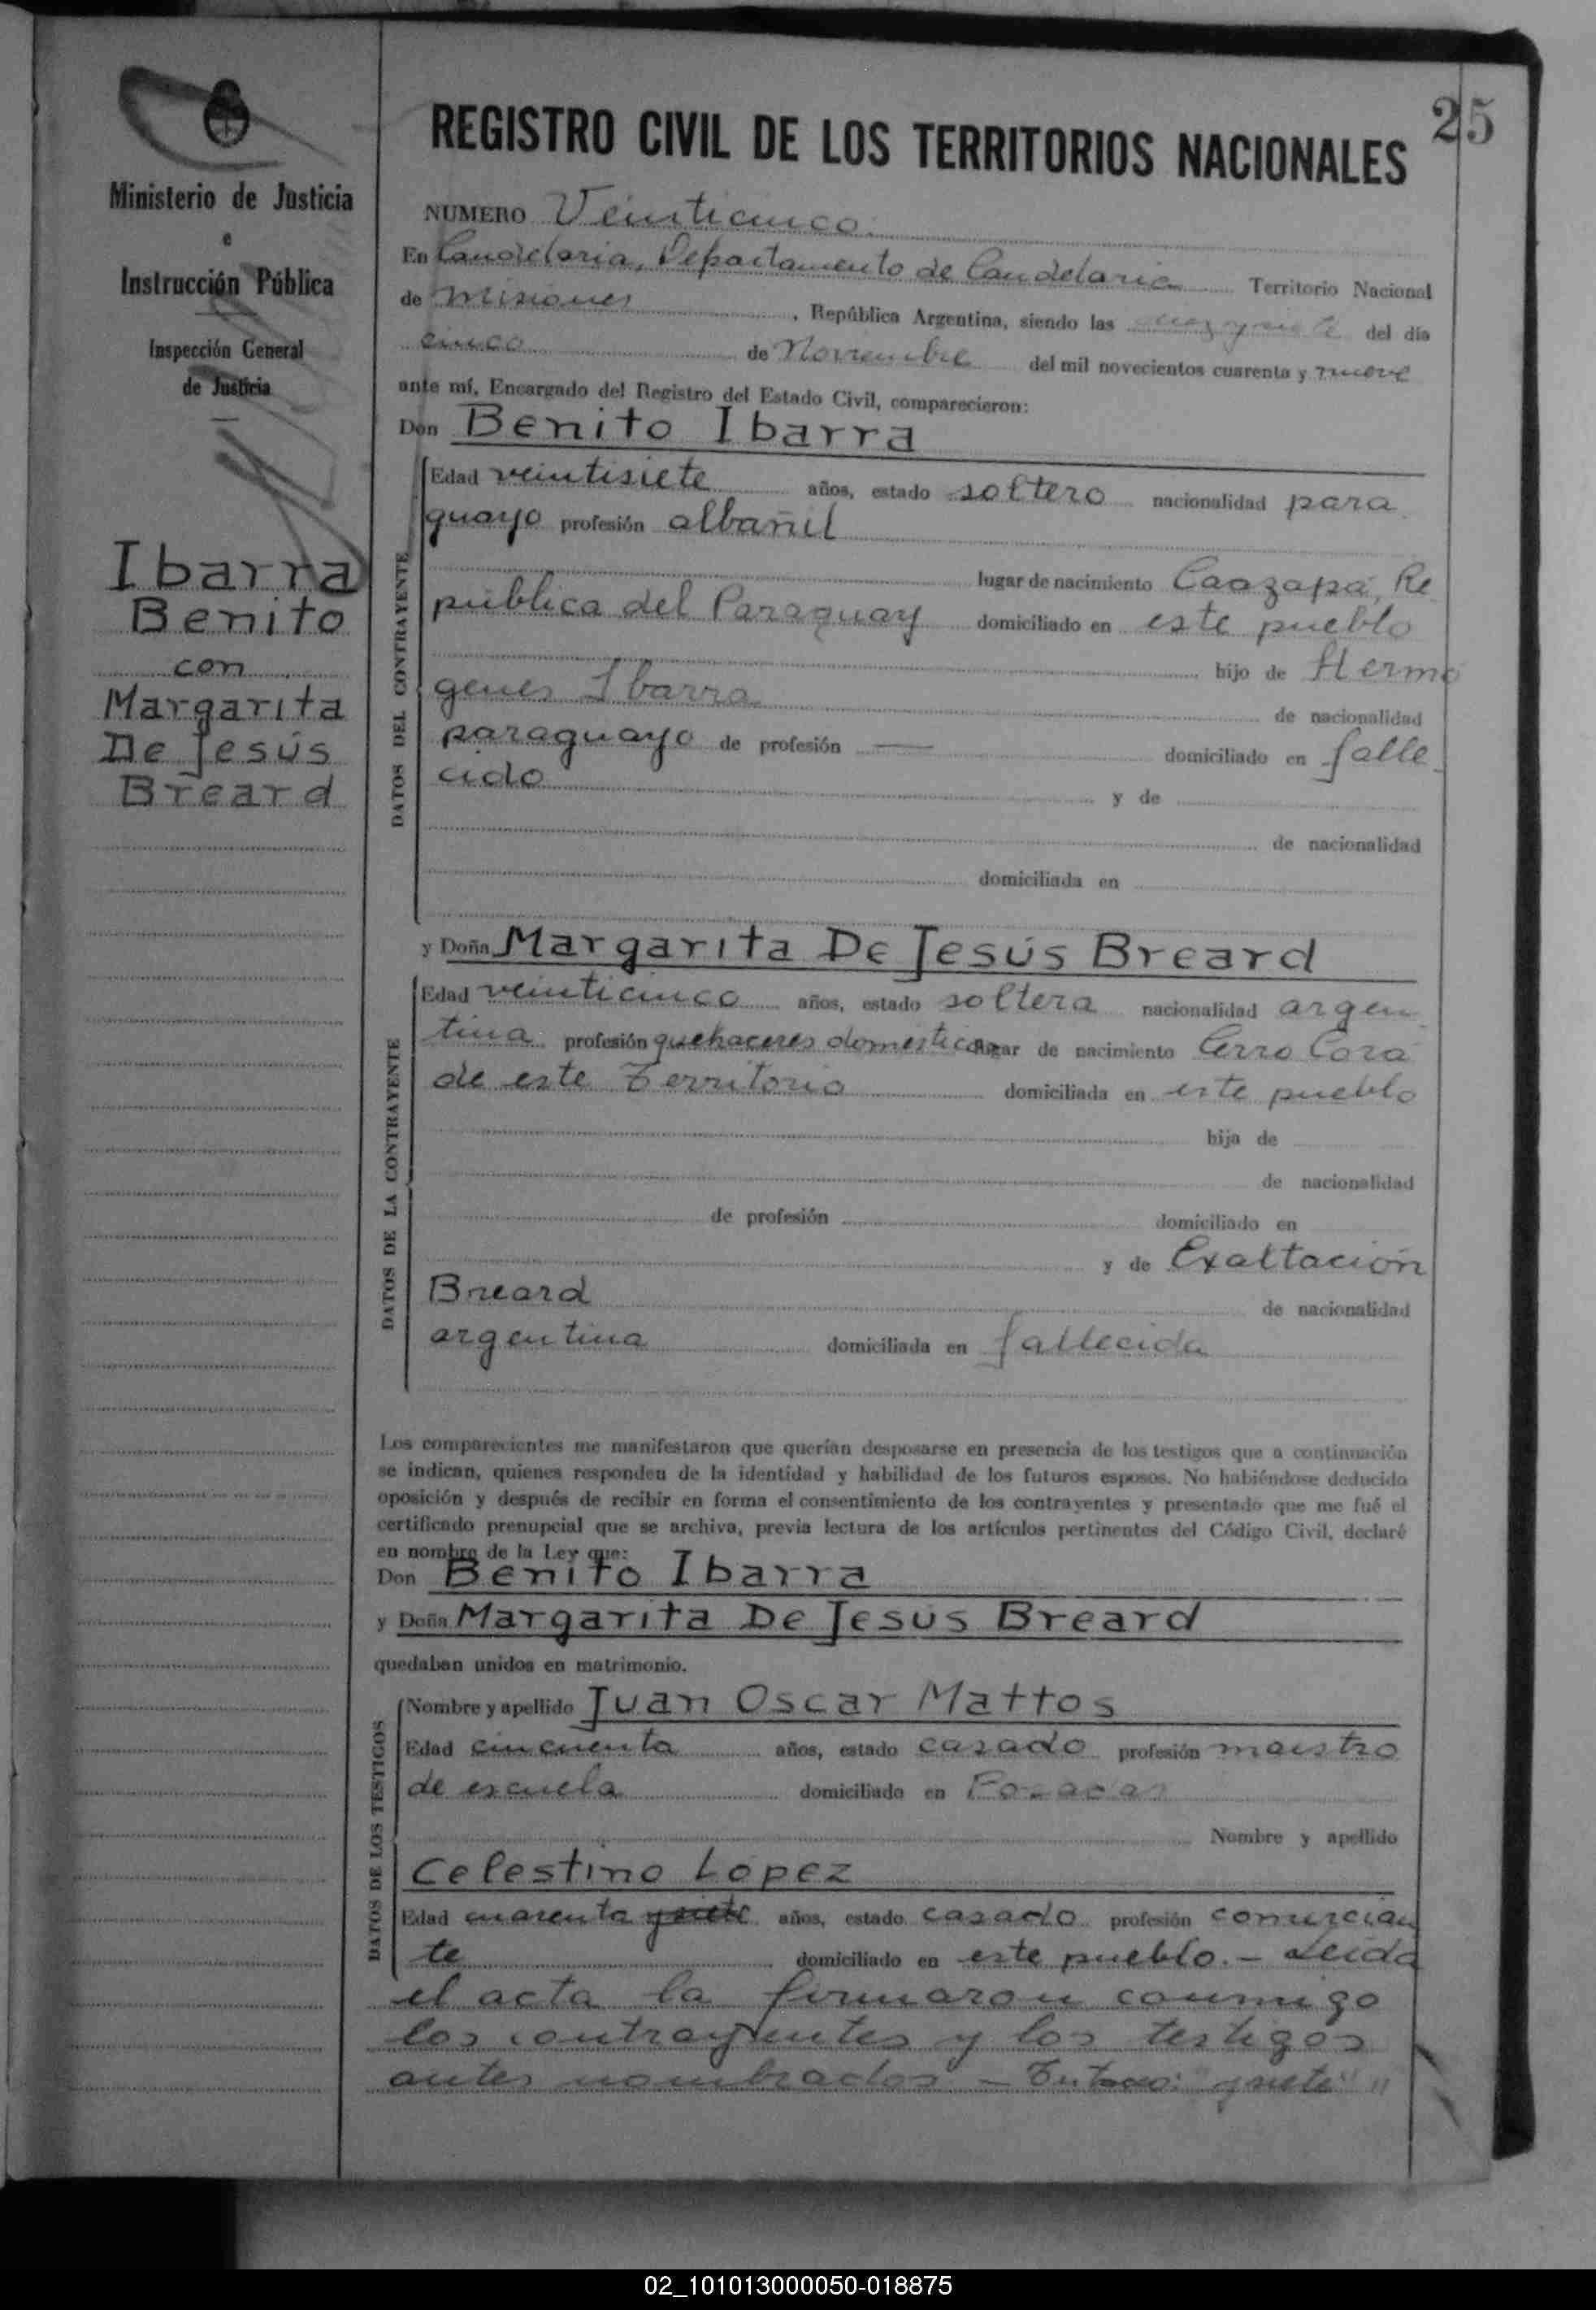 25
Ministerio de Justicia
e
Instrucción Pública
Inspección General
de Justicia
Ibarra
Benito
con
Margarita
De Jesús
Breard
REGISTRO CIVIL DE LOS TERRITORIOS NACIONALES
NUMERO Veinticinco.
En Candelaria, Departamento de Candelaria Territorio Nacional
de Misiones, República Argentina, siendo las diez y siete del día
cinco de Noviembre del mil novecientos cuarenta y nueve
ante mí, Encargado del Registro del Estado Civil, comparecieron:
Don Benito Ibarra
DATOS DEL CONTRAYENTE
Edad veintisiete años, estado soltero nacionalidad para
guayo profesión albañil
lugar de nacimiento Caazapá, Re
pública del Paraguay domiciliado en este pueblo
hijo de Hermó
genes Ibarra de nacionalidad
paraguayo de profesión — domiciliado en falle
cido y de
de nacionalidad
domiciliada en
y Doña Margarita De Jesús Breard
DATOS DE LA CONTRAYENTE
Edad veinticinco años, estado soltera nacionalidad argen
tina profesión quehaceres domesticos lugar de nacimiento Cerro Corá
de este Territorio domiciliada en este pueblo
hija de
de nacionalidad
de profesión domiciliado en
y de Exaltación
Breard de nacionalidad
argentina domiciliada en fallecida
Los comparecientes me manifestaron que querían desposarse en presencia de los testigos que a continuación
se indican, quienes responden de la identidad y habilidad de los futuros esposos. No habiéndose deducido
oposición y después de recibir en forma el consentimiento de los contrayentes y presentado que me fué el
certificado prenupcial que se archiva, previa lectura de los artículos pertinentes del Código Civil, declaré
en nombre de la Ley que:
Don Benito Ibarra
y Doña Margarita De Jesús Breard
quedaban unidos en matrimonio.
DATOS DE LOS TESTIGOS
Nombre y apellido Juan Oscar Mattos
Edad cincuenta años, estado casado profesión maestro
de escuela domiciliado en Posadas
Nombre y apellido
Celestino López
Edad cuarenta y siete años, estado casado profesión comercian
te domiciliado en este pueblo. — Leida
el acta la firmaron conmigo
los contrayentes y los testigos
antes nombrados — "y siete"
02_101013000050-018875